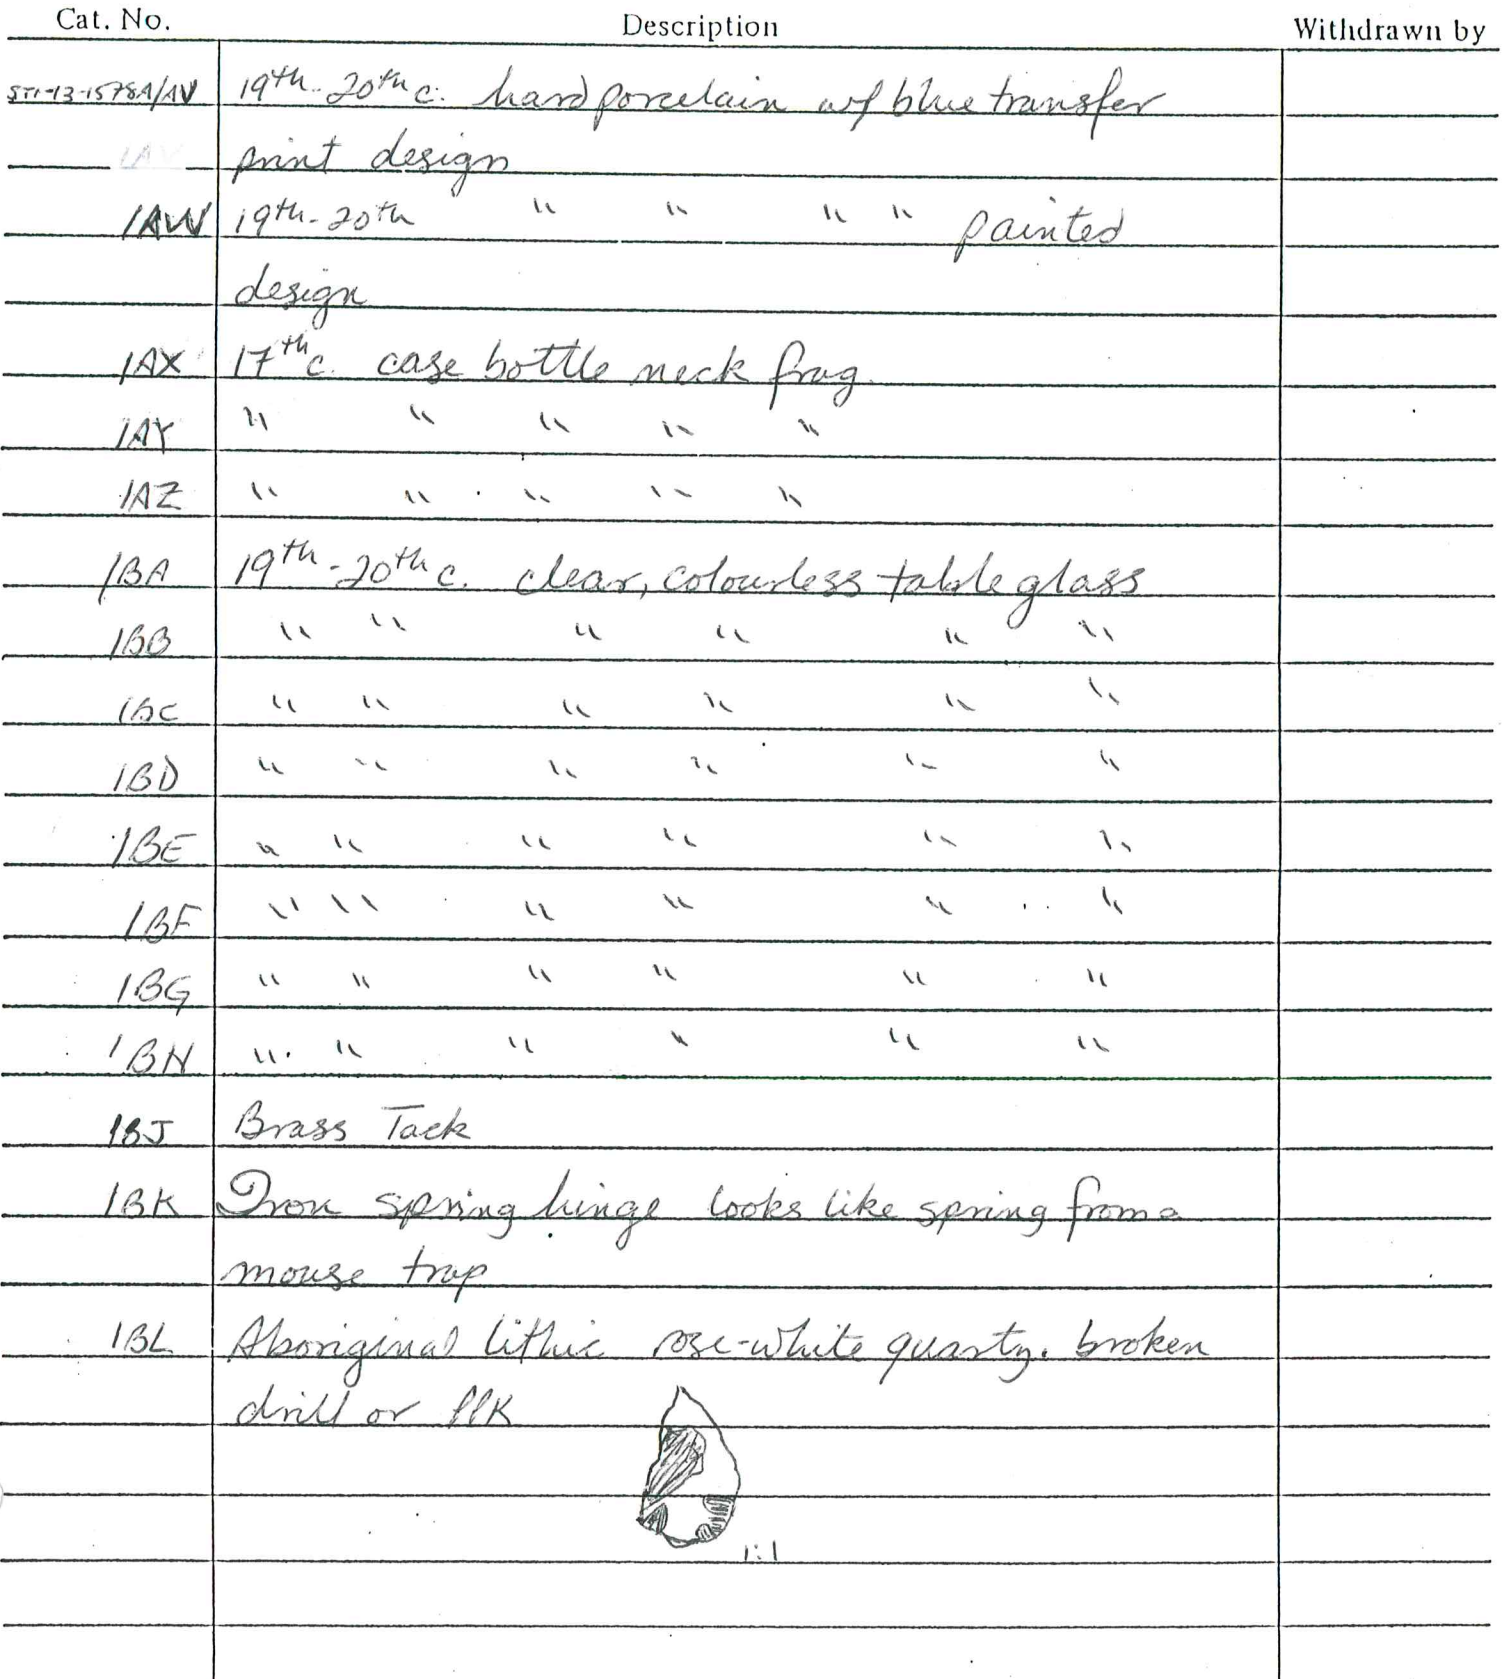 Cat. No. Description Withdrawn by
ST1-13-1578A/AV 19th-20th c. hard porcelain w/ blue transfer
1AV print design
1AW 19th-20th " " " " painted
design
1AX 17th c. case bottle neck frag.
1AY " " " " "
1AZ " " " " "
1BA 19th-20th c. clear, colourless table glass
1BB " " " " " "
1BC " " " " " "
1BD " " " " " "
1BE " " " " " "
1BF " " " " " "
1BG " " " " " "
1BH " " " " " "
1BJ Brass Tack
1BK Iron spring hinge looks like spring from a
mouse trap
1BL Aboriginal lithic rose-white quartz. broken
drill or PPK
1:1